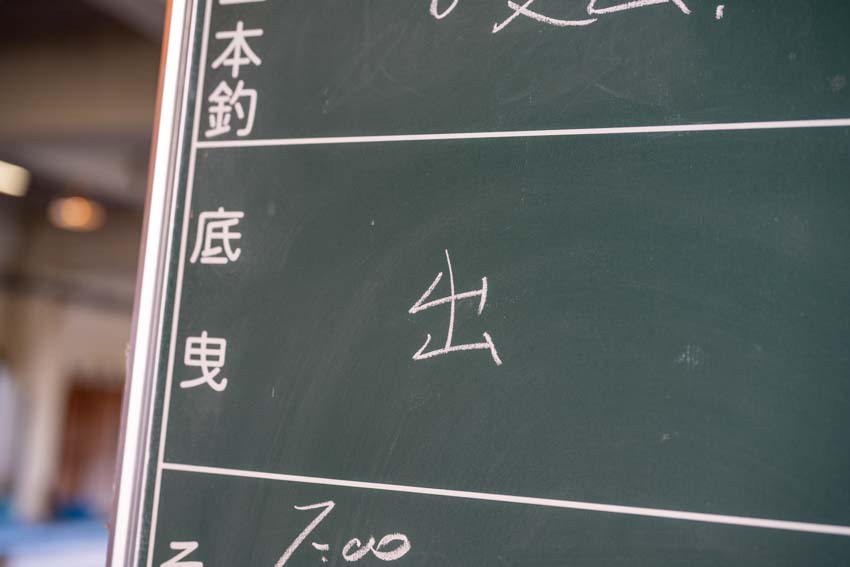 本釣
底曳
出
そ
7:00